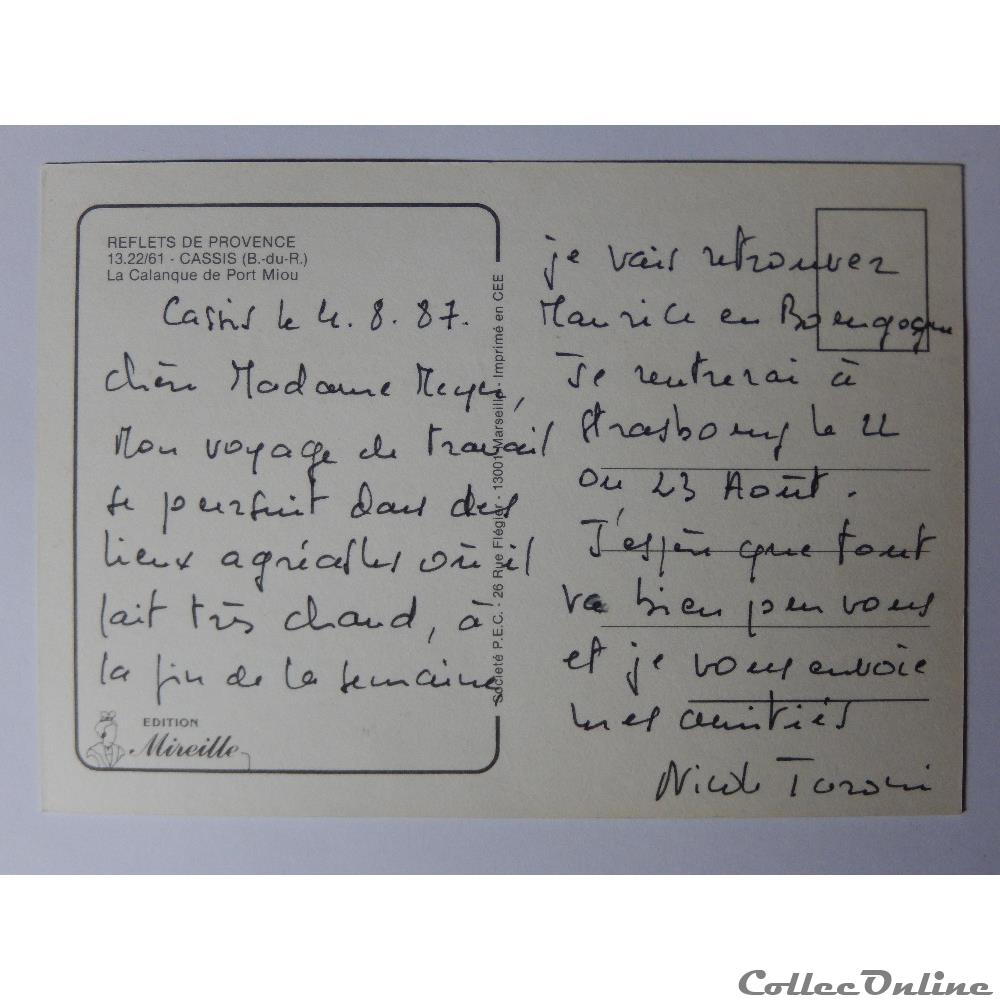 REFLETS DE PROVENCE
13.22/61 - CASSIS (B.-du-R.)
La Calanque de Port Miou
Cassis le 4. 8. 87.
Chère Madame Meyer,
Mon voyage de travail
se poursuit dans des
lieux agréables où il
fait très chaud, à
la fin de la semaine
EDITION
Mireille
Société P.E.C. - 26 Rue Flégier - 13001 Marseille - Imprimé en CEE
je vais retrouver
Maurice en Bourgogne
Je rentrerai à
Strasbourg le 22
ou 23 Août.
J'espère que tout
va bien pour vous
et je vous envoie
mes amitiés
Nicole
CollecOnline